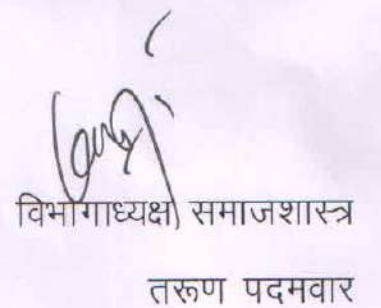 विभागाध्यक्ष समाजशास्त्र
तरूण पदमवार